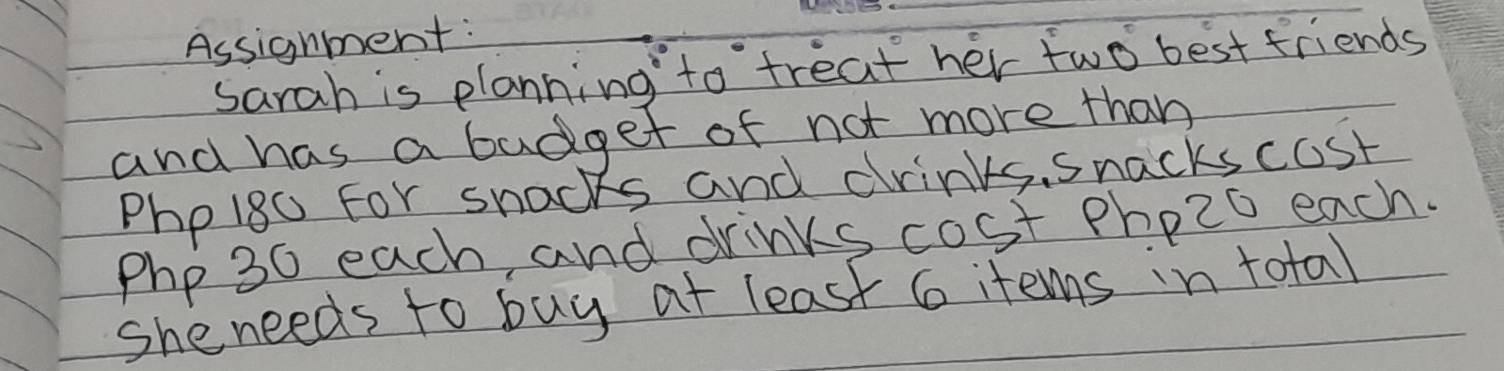 Assignment:
Sarah is planning to treat her two best friends
and has a budget of not more than
Php 180 For snacks and drinks. Snacks cost
Php 30 each, and drinks cost Php20 each.
She needs to buy at least 6 items in total